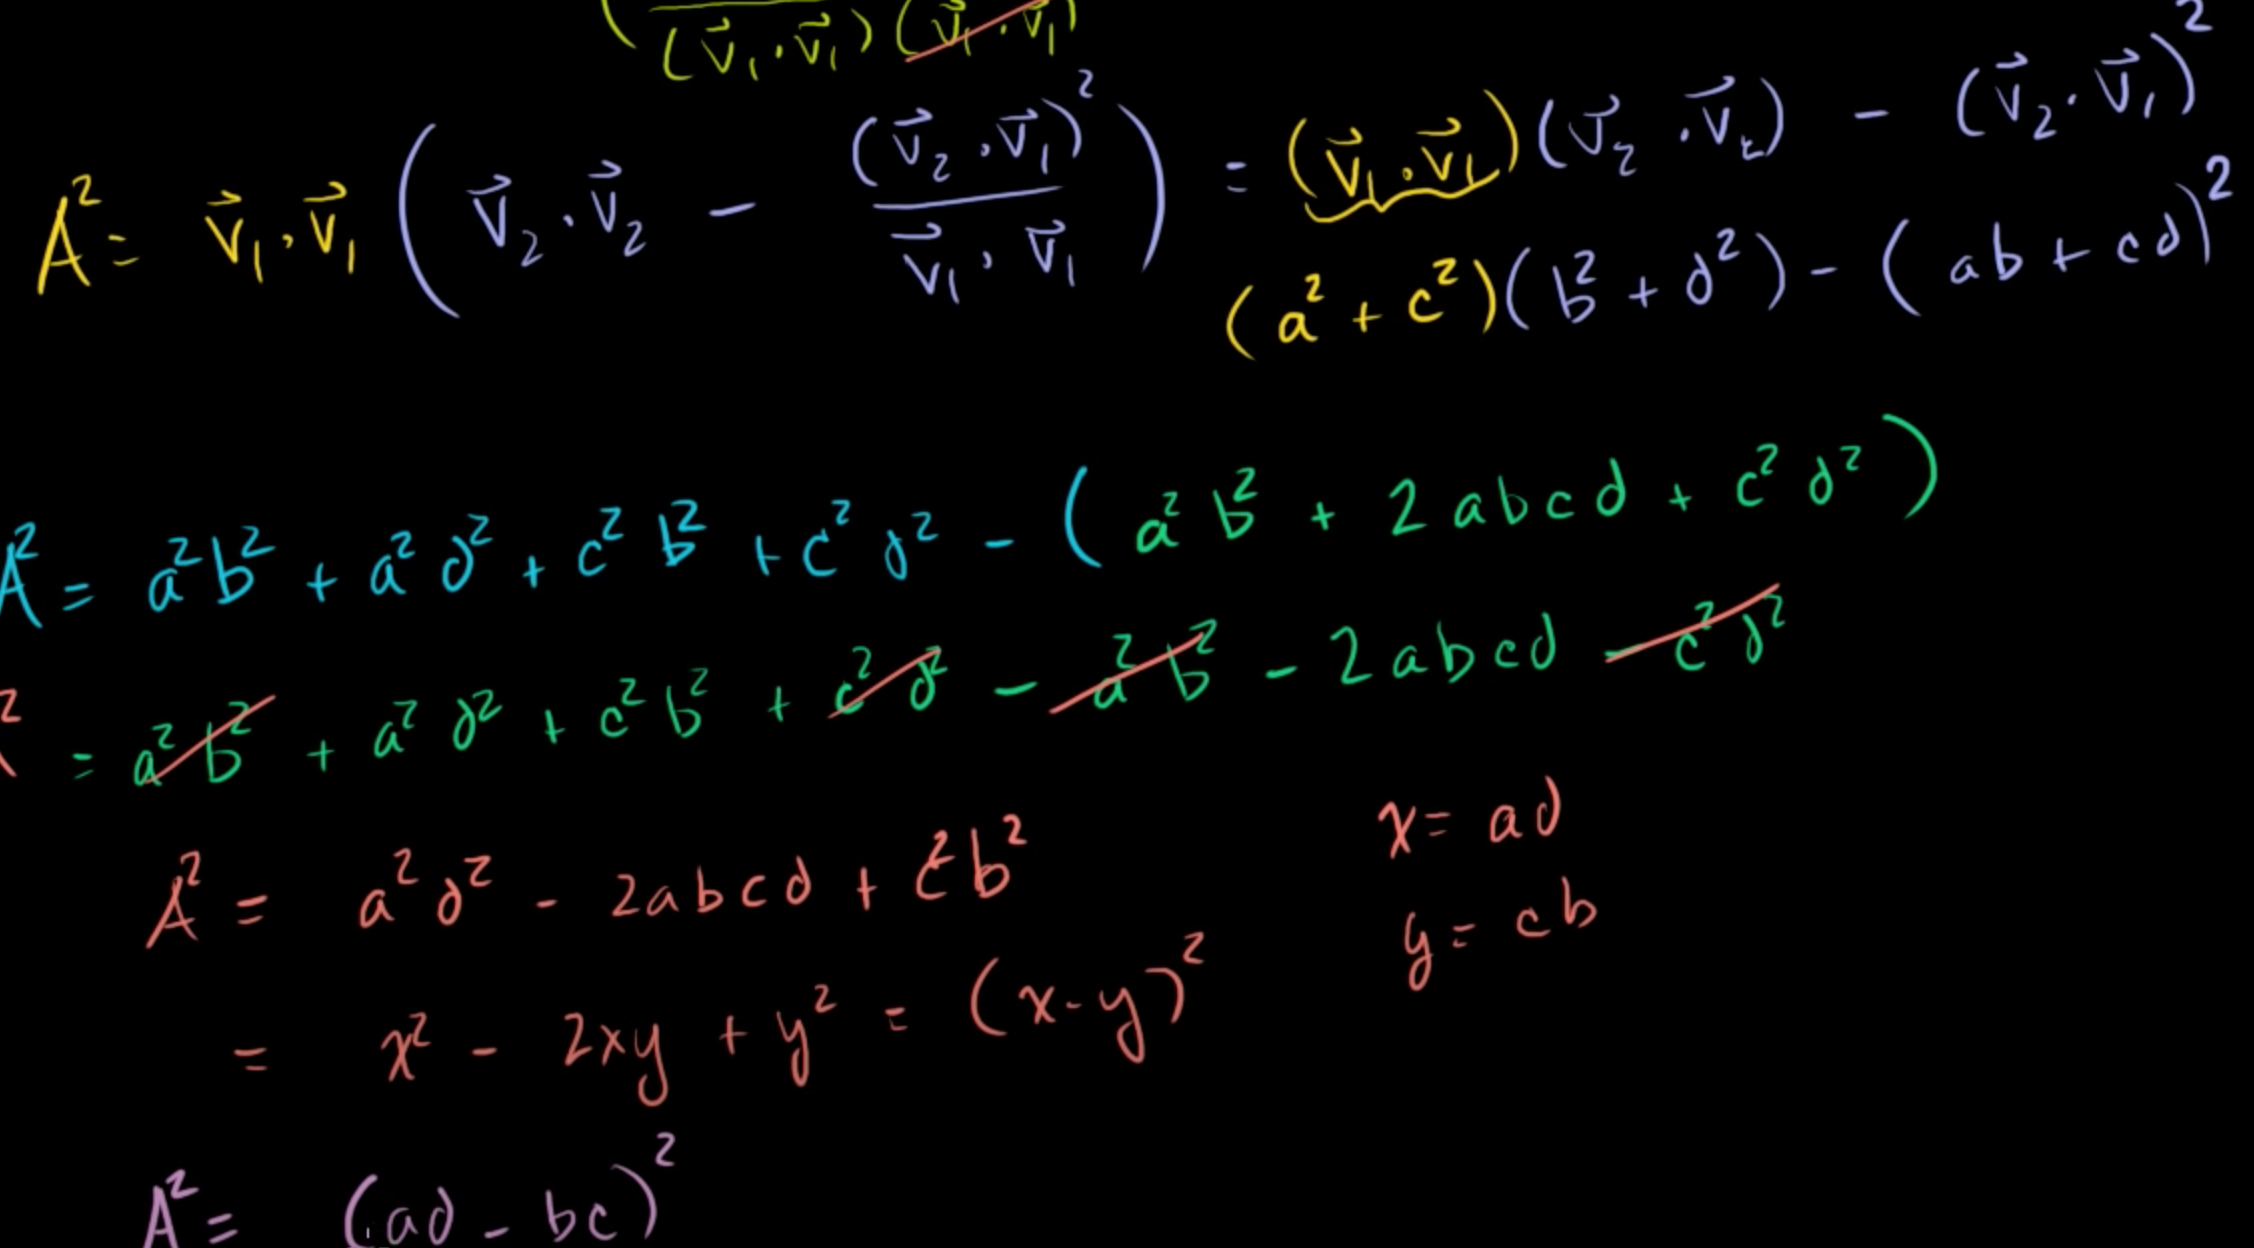 (v⃗₁ · v⃗₁)(v⃗₁ · v⃗₁)
A² = v⃗₁ · v⃗₁ ( v⃗₂ · v⃗₂ − (v⃗₂ · v⃗₁)² / v⃗₁ · v⃗₁ ) = (v⃗₁ · v⃗₁)(v⃗₂ · v⃗₂) − (v⃗₂ · v⃗₁)²
(a² + c²)(b² + d²) − (ab + cd)²
A² = a²b² + a²d² + c²b² + c²d² − (a²b² + 2abcd + c²d²)
² = a²b² + a²d² + c²b² + c²d² − a²b² − 2abcd − c²d²
A² = a²d² − 2abcd + c²b²
x = ad
y = cb
= x² − 2xy + y² = (x − y)²
A² = (ad − bc)²